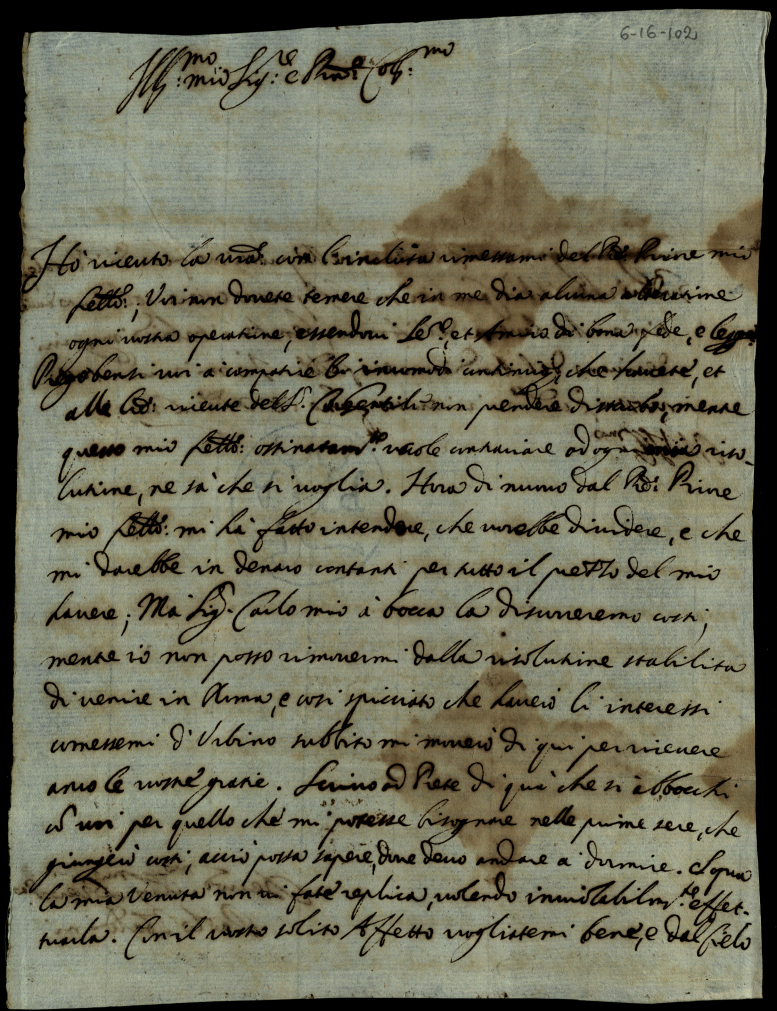 6-16-102
Ill:mo mio Sig:re e Pron:e Col:mo
Hò riceuto la vra: con l'inclusa rimessami del Pre: Priore mio
frello:; Voi non dovete temere che in me dia alcuna
ogni vostra operatione, essendovi Se:re, et Amico di bona fede, e
Prego bensi voi a compatire li incomodi continui, che havete, et
alle riceute del S:r non prendere disturbo, mentre
questo mio frello: ostinatam:te vuole contrariare ad ogni mia riso-
lutione, ne sà che si voglia. Hora di nuovo dal Pre: Priore
mio frello: mi hà fatto intendere, che vorebbe dividere, e che
mi darebbe in denaro contanti per tutto il prezzo del mio
havere; Mà Sig:r Carlo mio à bocca la discorreremo costi,
mentre io non posso rimovermi dalla risolutione stabilita
di venire in Roma, e cosi spicciato che haverò li interessi
comessemi d'Urbino subbito mi moverò di qui per ricevere
anco le vostre gratie. Scrivo ad Prete di quà che si abbocchi
cõ voi per quello che mi potesse bisognare nelle prime sere, che
giungerò costi, acciò possa sapere, dove devo andare a dormire. Sopra
la mia Venuta non mi fate replica, volendo inviolabilm:te effet-
tuarla. Con il vostro solito Affetto vogliatemi bene, e dal Cielo